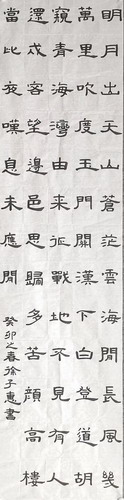 明月出天山蒼茫雲海間長風幾
萬里吹度玉門關漢下白登道胡
窺青海灣由來征戰地不見有人
還戍客望邊邑思歸多苦顏高樓
當此夜嘆息未應閒
癸卯之春徐子惠書